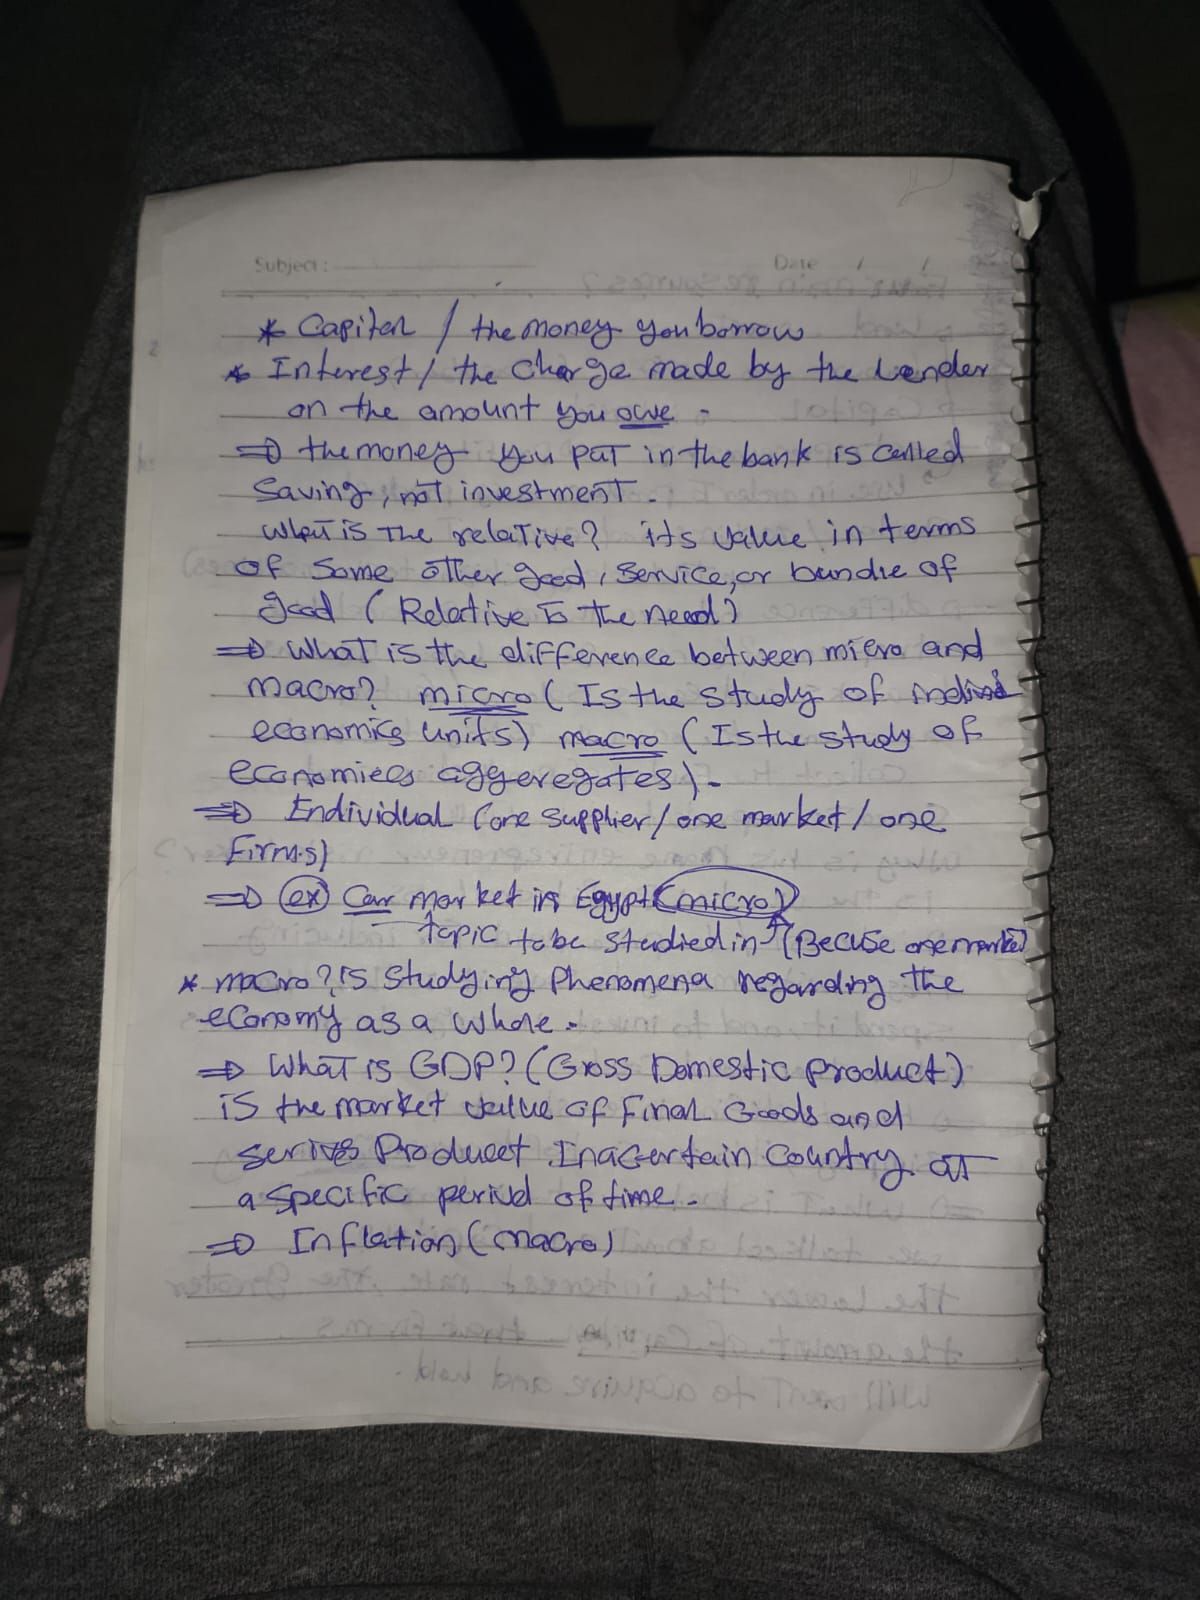 Subject: Date / /
* Capital / the money you borrow
* Interest / the charge made by the Lender
on the amount you owe -
=> the money you put in the bank is called
Saving, not investment.
What is the relative? its value in terms
of some other good, service, or bundle of
good (Relative to the need)
=> What is the difference between micro and
macro? micro (Is the study of individ
economics units) macro (Is the study of
economices aggeregates).
=> Endividual (one supplier / one market / one
firms)
=> (ex) Car market in Egypt (micro)
topic to be studied in (Becuse one market)
* macro? is studying Phenomena regarding the
economy as a whole.
=> What is GDP? (Gross Domestic product)
is the market value of final Goods and
serives Producet In a certain country at
a specific period of time.
=> Inflation (macro)